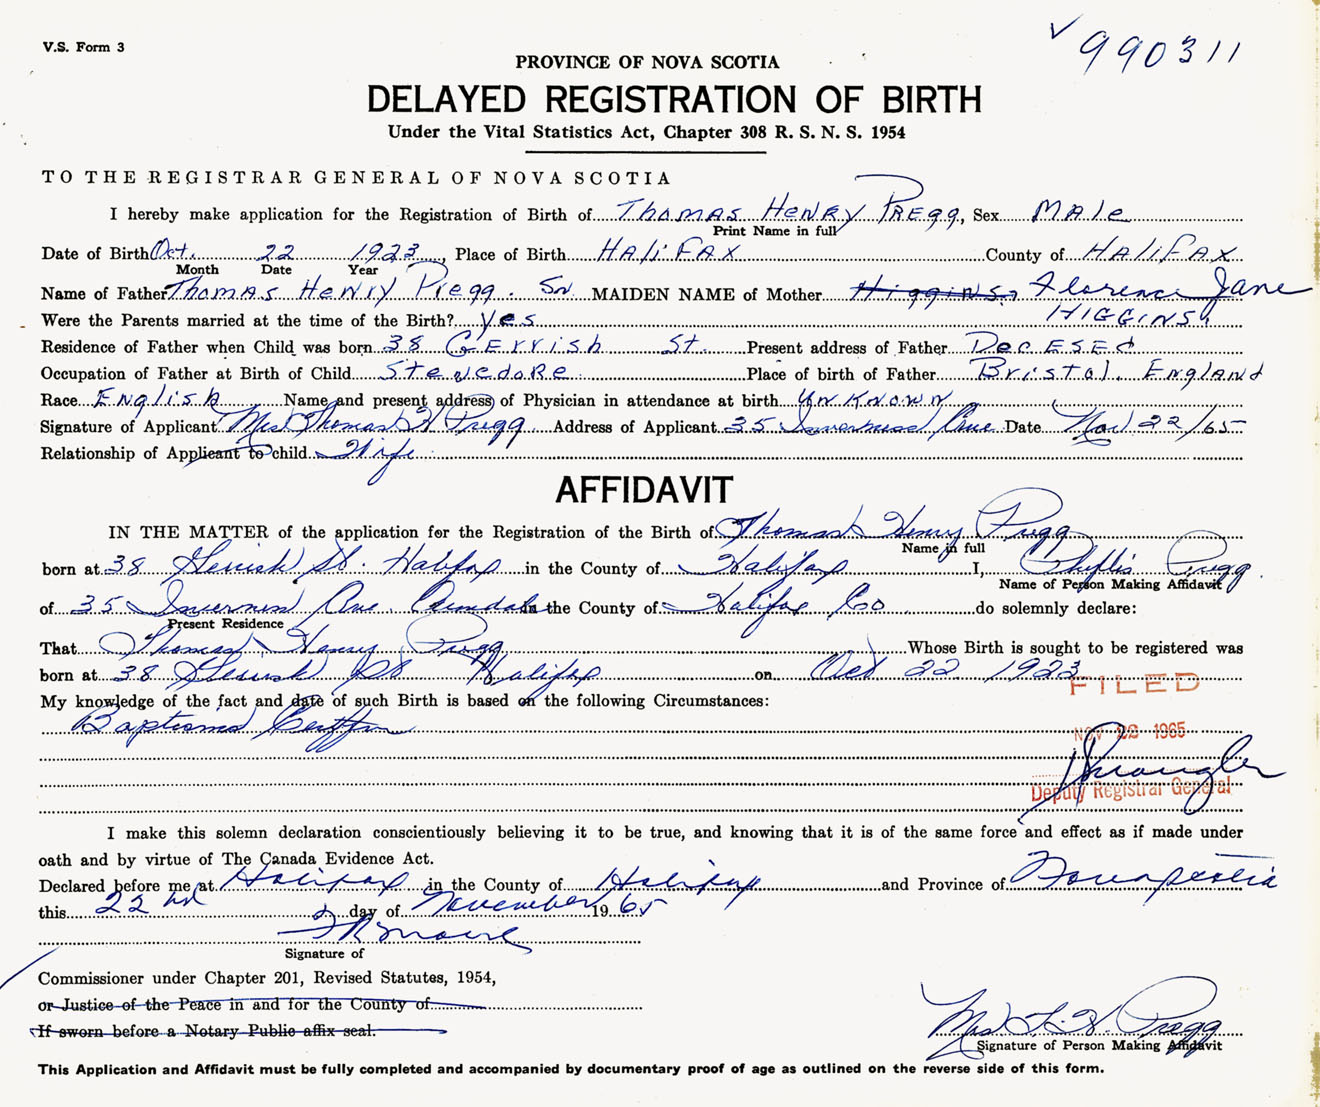 V.S. Form 3
990311
PROVINCE OF NOVA SCOTIA
DELAYED REGISTRATION OF BIRTH
Under the Vital Statistics Act, Chapter 308 R. S. N. S. 1954
TO THE REGISTRAR GENERAL OF NOVA SCOTIA
I hereby make application for the Registration of Birth of Thomas Henry Pregg, Sex Male
Print Name in full
Date of Birth Oct. 22 1923, Place of Birth Halifax County of Halifax
Month Date Year
Name of Father Thomas Henry Pregg. Sn MAIDEN NAME of Mother Higgins, Florence Jane
HIGGINS
Were the Parents married at the time of the Birth? yes
Residence of Father when Child was born 38 Gerrish St. Present address of Father DecESEd
Occupation of Father at Birth of Child Stevedore Place of birth of Father Bristol, England
Race English Name and present address of Physician in attendance at birth unknown
Signature of Applicant Mrs Thomas H Pregg Address of Applicant 35 Inverness Ave Date Nov 22/65
Relationship of Applicant to child Wife
AFFIDAVIT
IN THE MATTER of the application for the Registration of the Birth of Thomas Henry Pregg
Name in full
born at 38 Gerrish St. Halifax in the County of Halifax I, Phyllis Pregg
Name of Person Making Affidavit
of 35 Inverness Ave. Armdale in the County of Halifax Co do solemnly declare:
Present Residence
That Thomas Henry Pregg Whose Birth is sought to be registered was
born at 38 Gerrish St Halifax on Oct 22 1923
FILED
My knowledge of the fact and date of such Birth is based on the following Circumstances:
Baptismal
NOV 22 1965
Deputy Registrar General
I make this solemn declaration conscientiously believing it to be true, and knowing that it is of the same force and effect as if made under
oath and by virtue of The Canada Evidence Act.
Declared before me at Halifax in the County of Halifax and Province of Nova Scotia
this 22nd day of November 1965
Signature of
Commissioner under Chapter 201, Revised Statutes, 1954,
or Justice of the Peace in and for the County of
If sworn before a Notary Public affix seal.
Mrs T. H. Pregg
Signature of Person Making Affidavit
This Application and Affidavit must be fully completed and accompanied by documentary proof of age as outlined on the reverse side of this form.